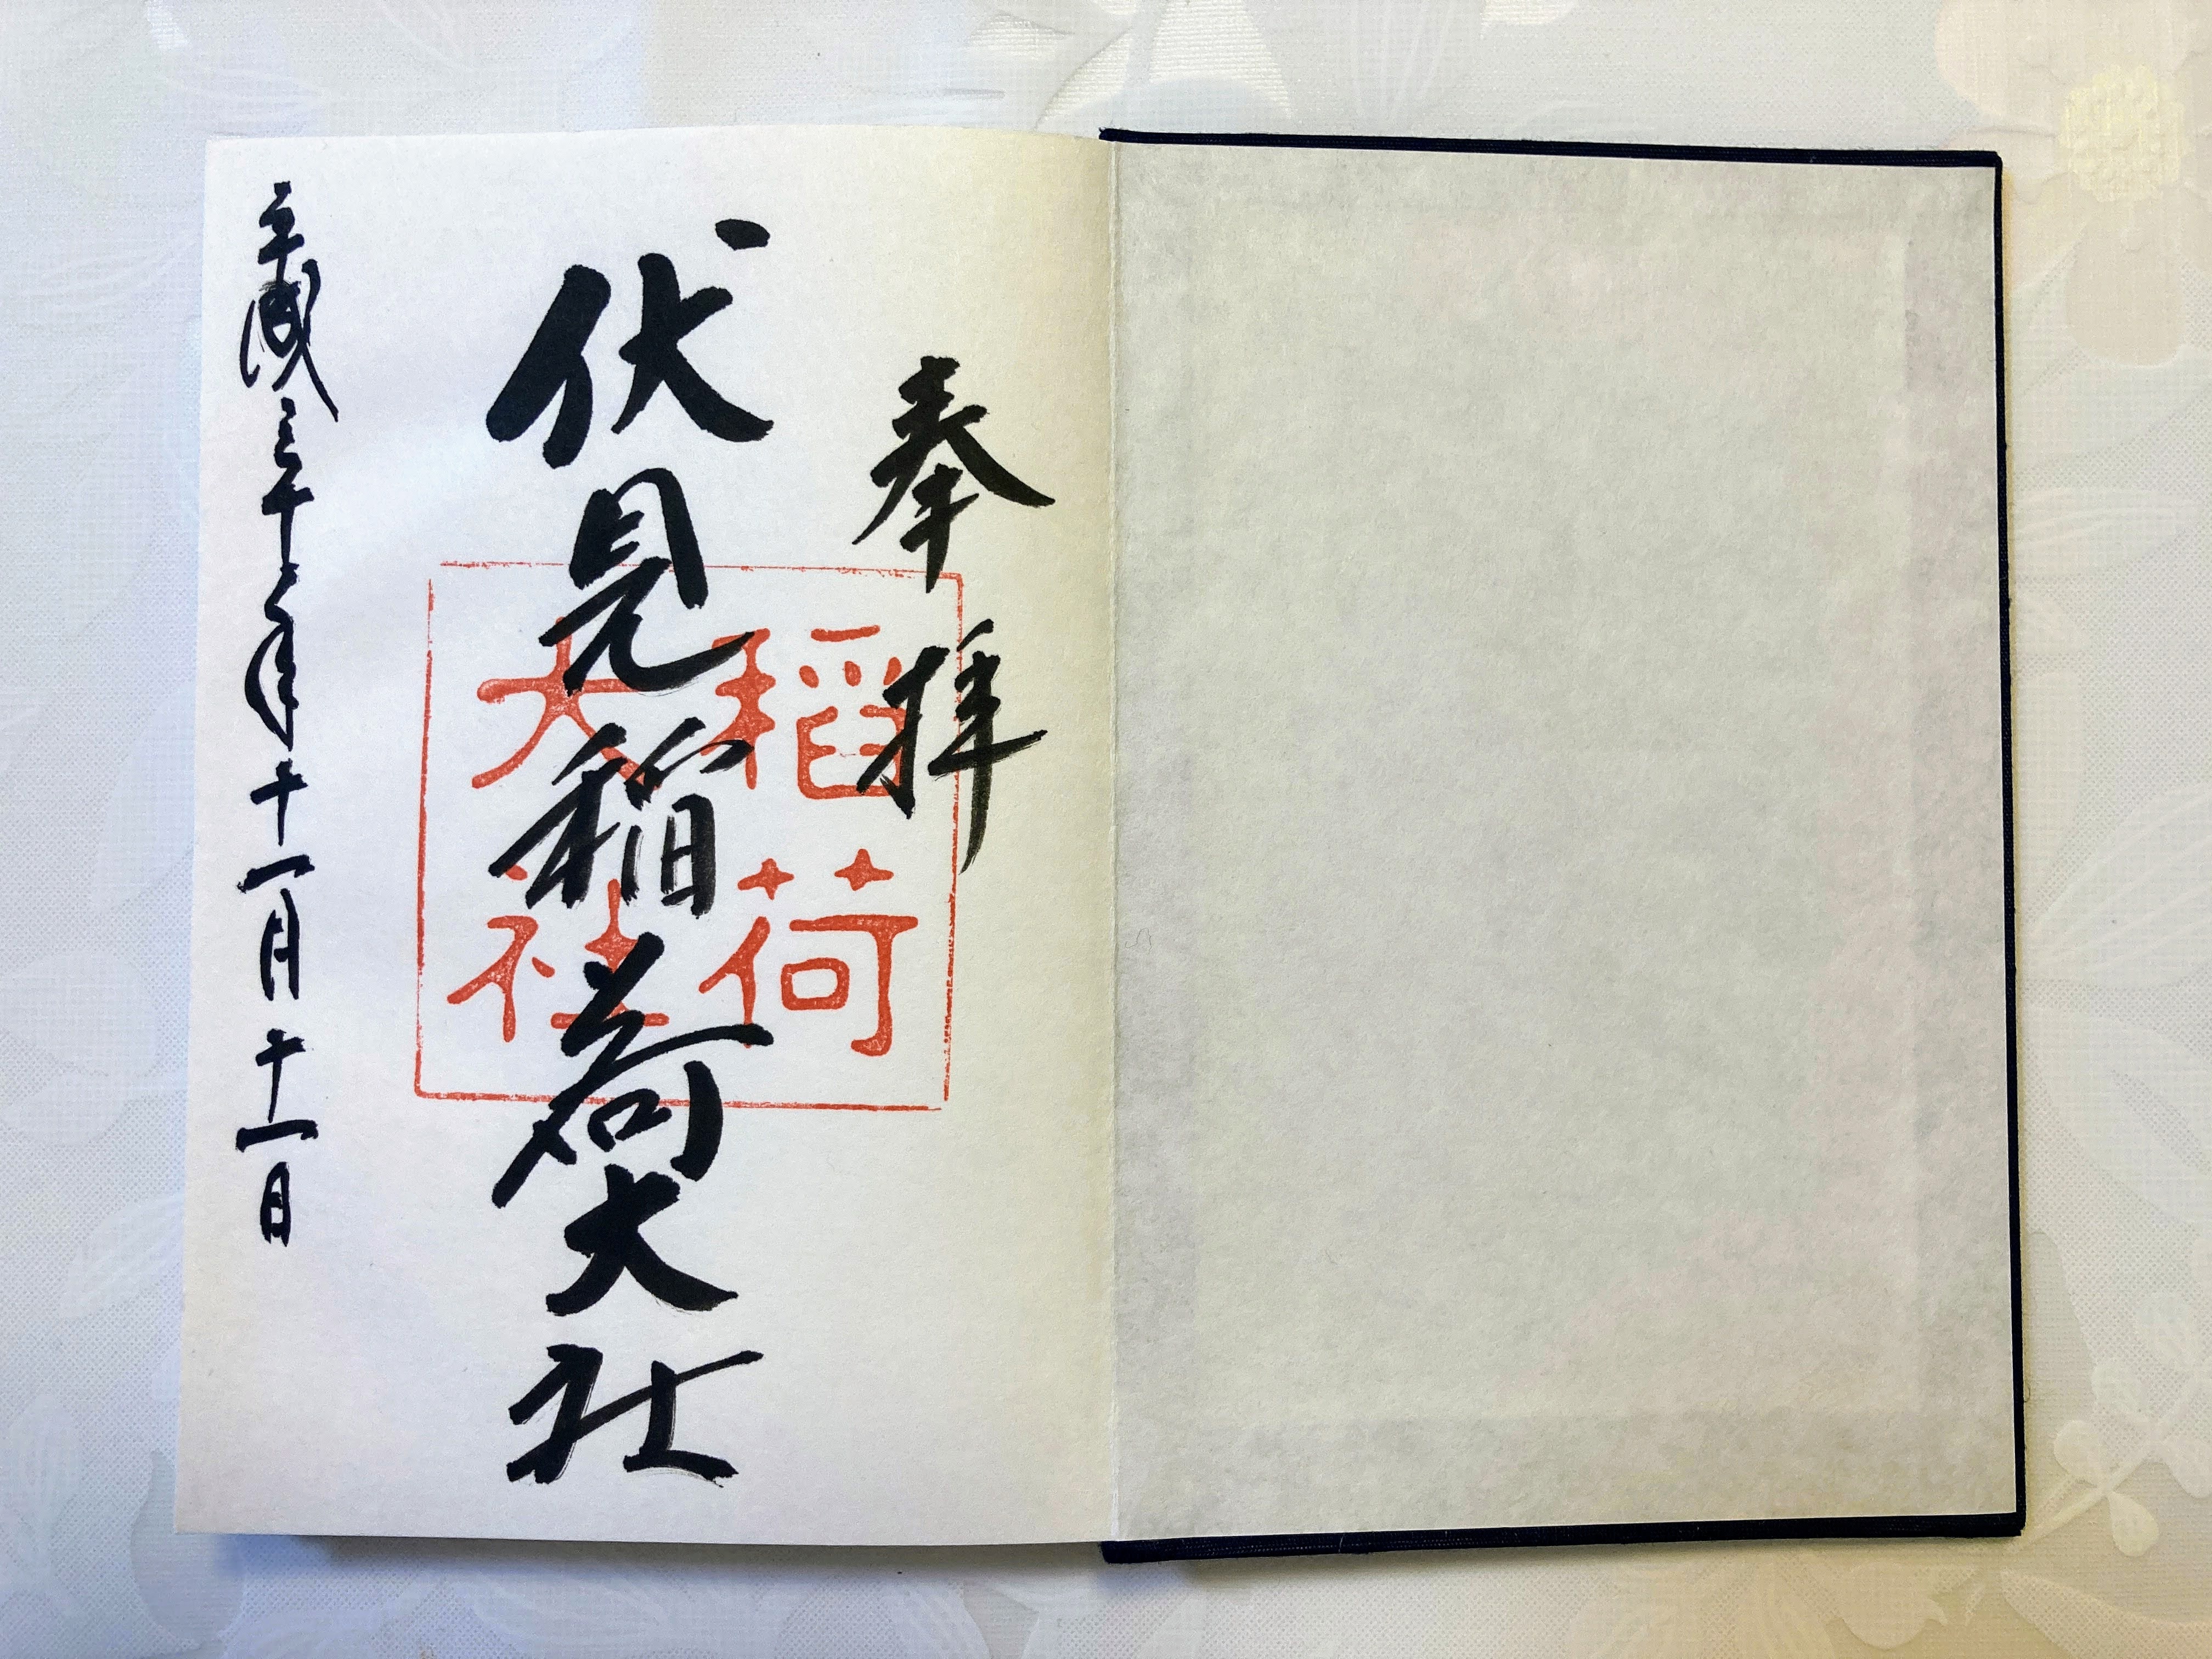 奉拝
伏見稲荷大社
稲荷
大社
平成三十年十一月十一日